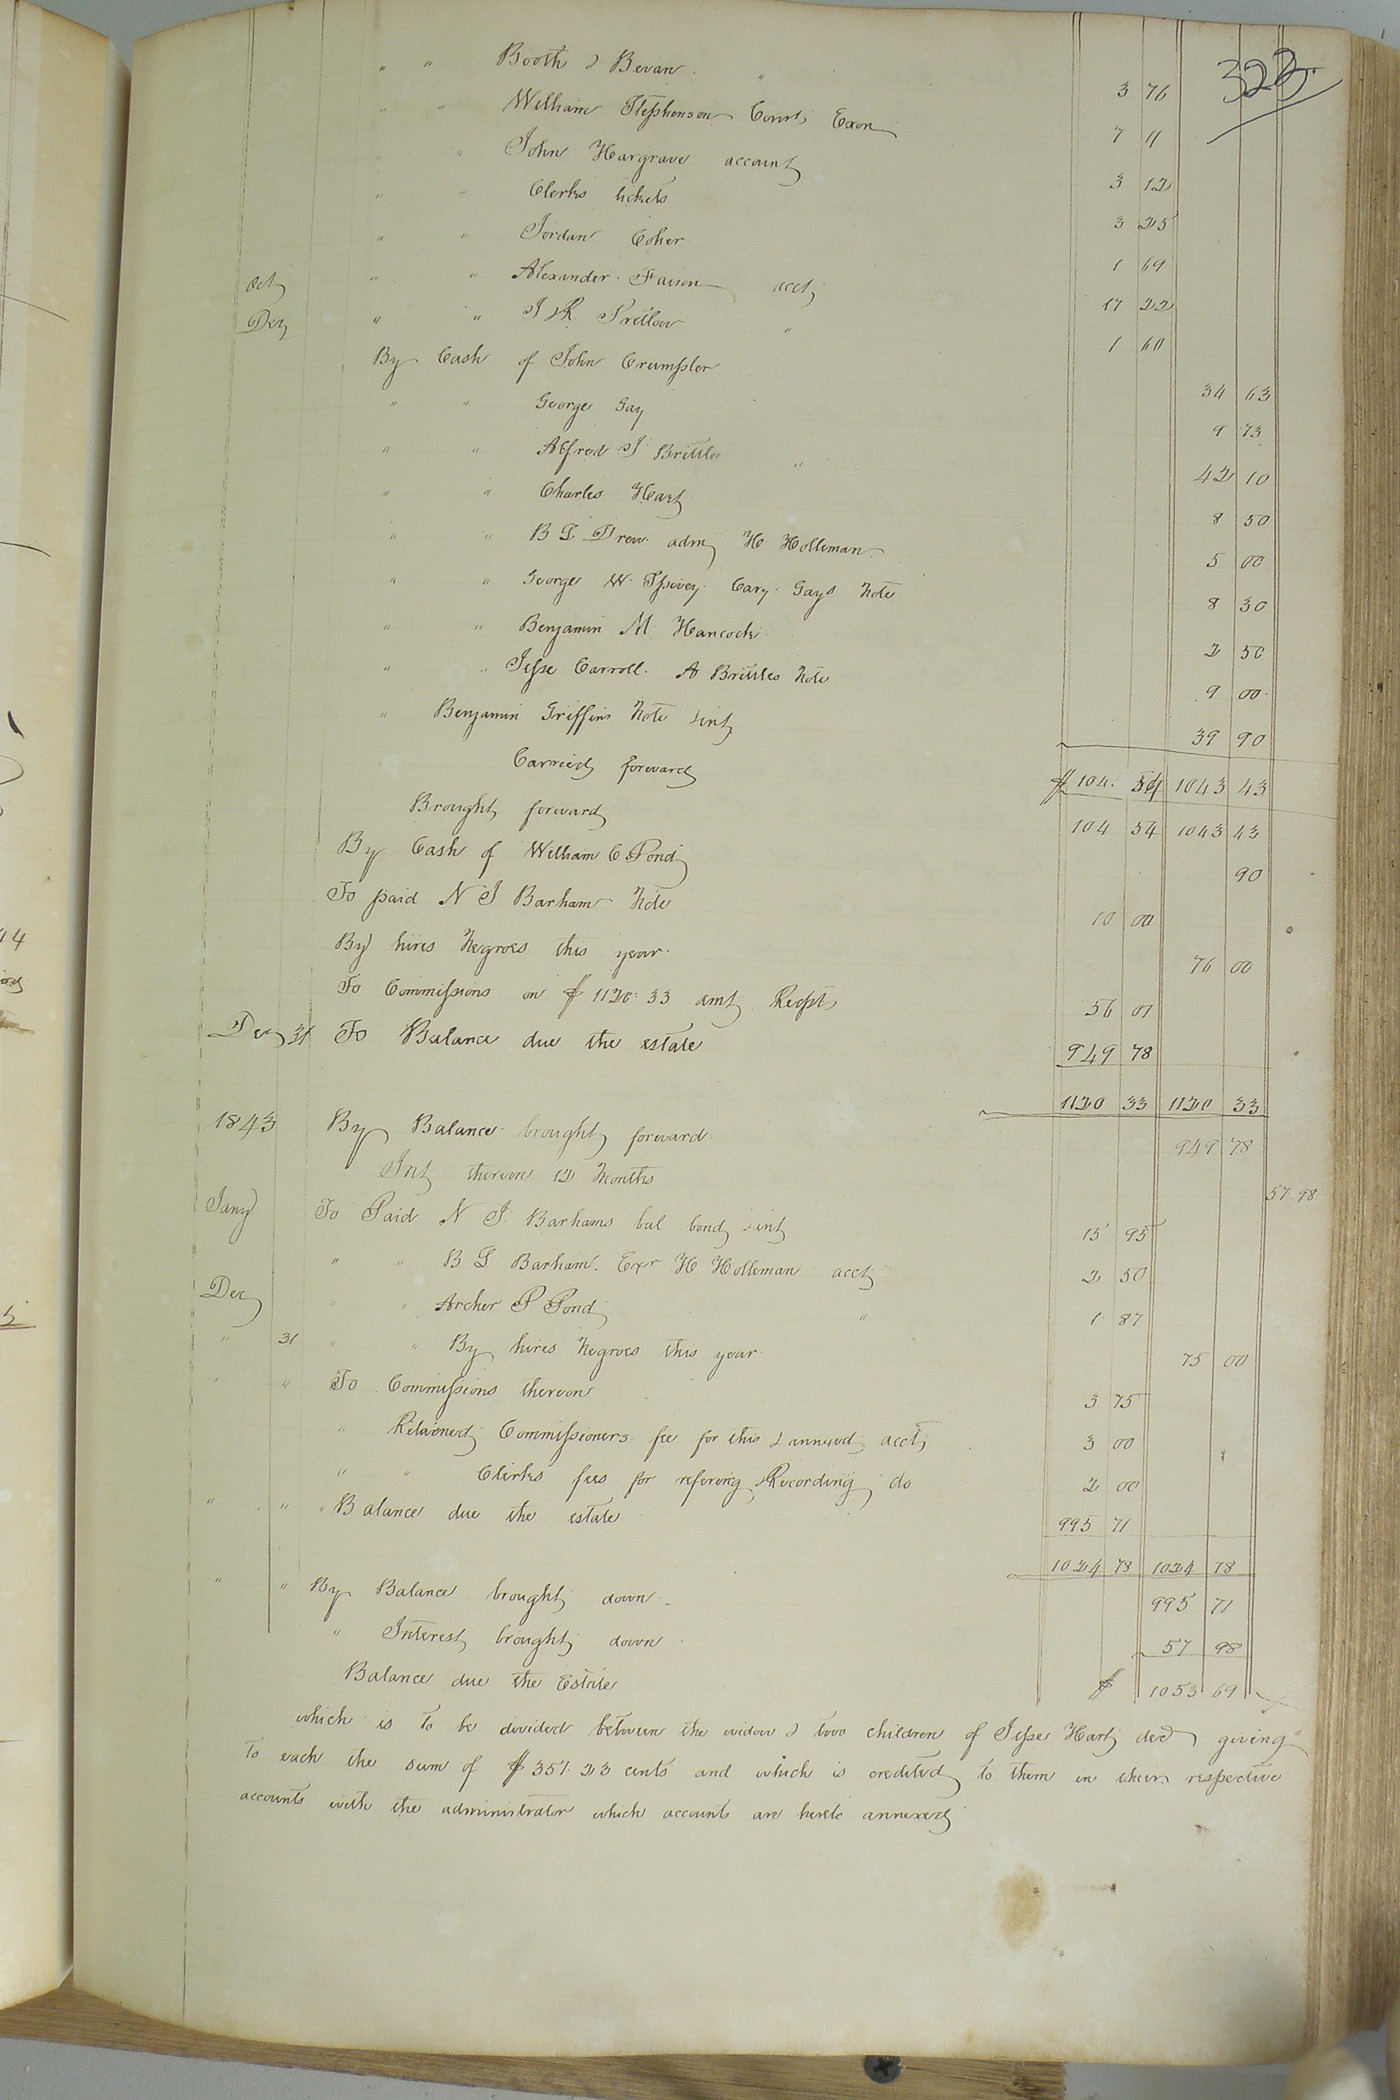 323
" " Booth & Bevan " 3 76
" " William Stephenson Court, Exon 7 11
" John Hargrave account 3 12
" " Clerks tickets 3 25
" " Jordan Coker 1 69
Oct " " Alexander Faison acct, 17 22
Dec " " J R Prellow " 1 60
By Cash of John Crumpler 34 63
" " George Gay 9 73
" " Alfred J Brittle " 42 10
" " Charles Hart 8 50
" " B T Drew adm H Holleman 5 00
" " George W. Spivey Cary Gays Note 8 30
" " Benjamin M Hancock 2 50
" " Jesse Carroll. A Brittles Note 9 00
" Benjamin Griffins Note & int 39 90
Carried forward $104. 54 1043 43
Brought forward 104 54 1043 43
By Cash of William C Pond 90
To paid N J Barham Note 10 00
By hires Negroes this year 76 00
To Commissions on $1120.33 amt Recpts 56 01
Dec 31 To Balance due the estate 949 78
1120 33 1120 33
1843 By Balance brought forward 949 78
Int thereon 12 Months 57 98
Jany To Paid N J. Barhams bal bond & int 15 95
" " B T Barham. Exr H Holleman acct 2 50
Dec " Archer P Pond " 1 87
" 31 " " By hires Negroes this year 75 00
" " To Commissions thereon 3 75
" Retained Commissioners fee for this & annexed acct, 3 00
" " Clerks fees for refering & Recording do 2 00
" " " Balance due the estate 995 71
1024 78 1024 78
" " By Balance brought down 995 71
" Interest brought down 57 98
Balance due the Estate $ 1053 69
which is to be divided between the widow & two children of Jesse Hart decd giving
to each the sum of $351.23 cents and which is credited to them in their respective
accounts with the administrator which accounts are hereto annexed